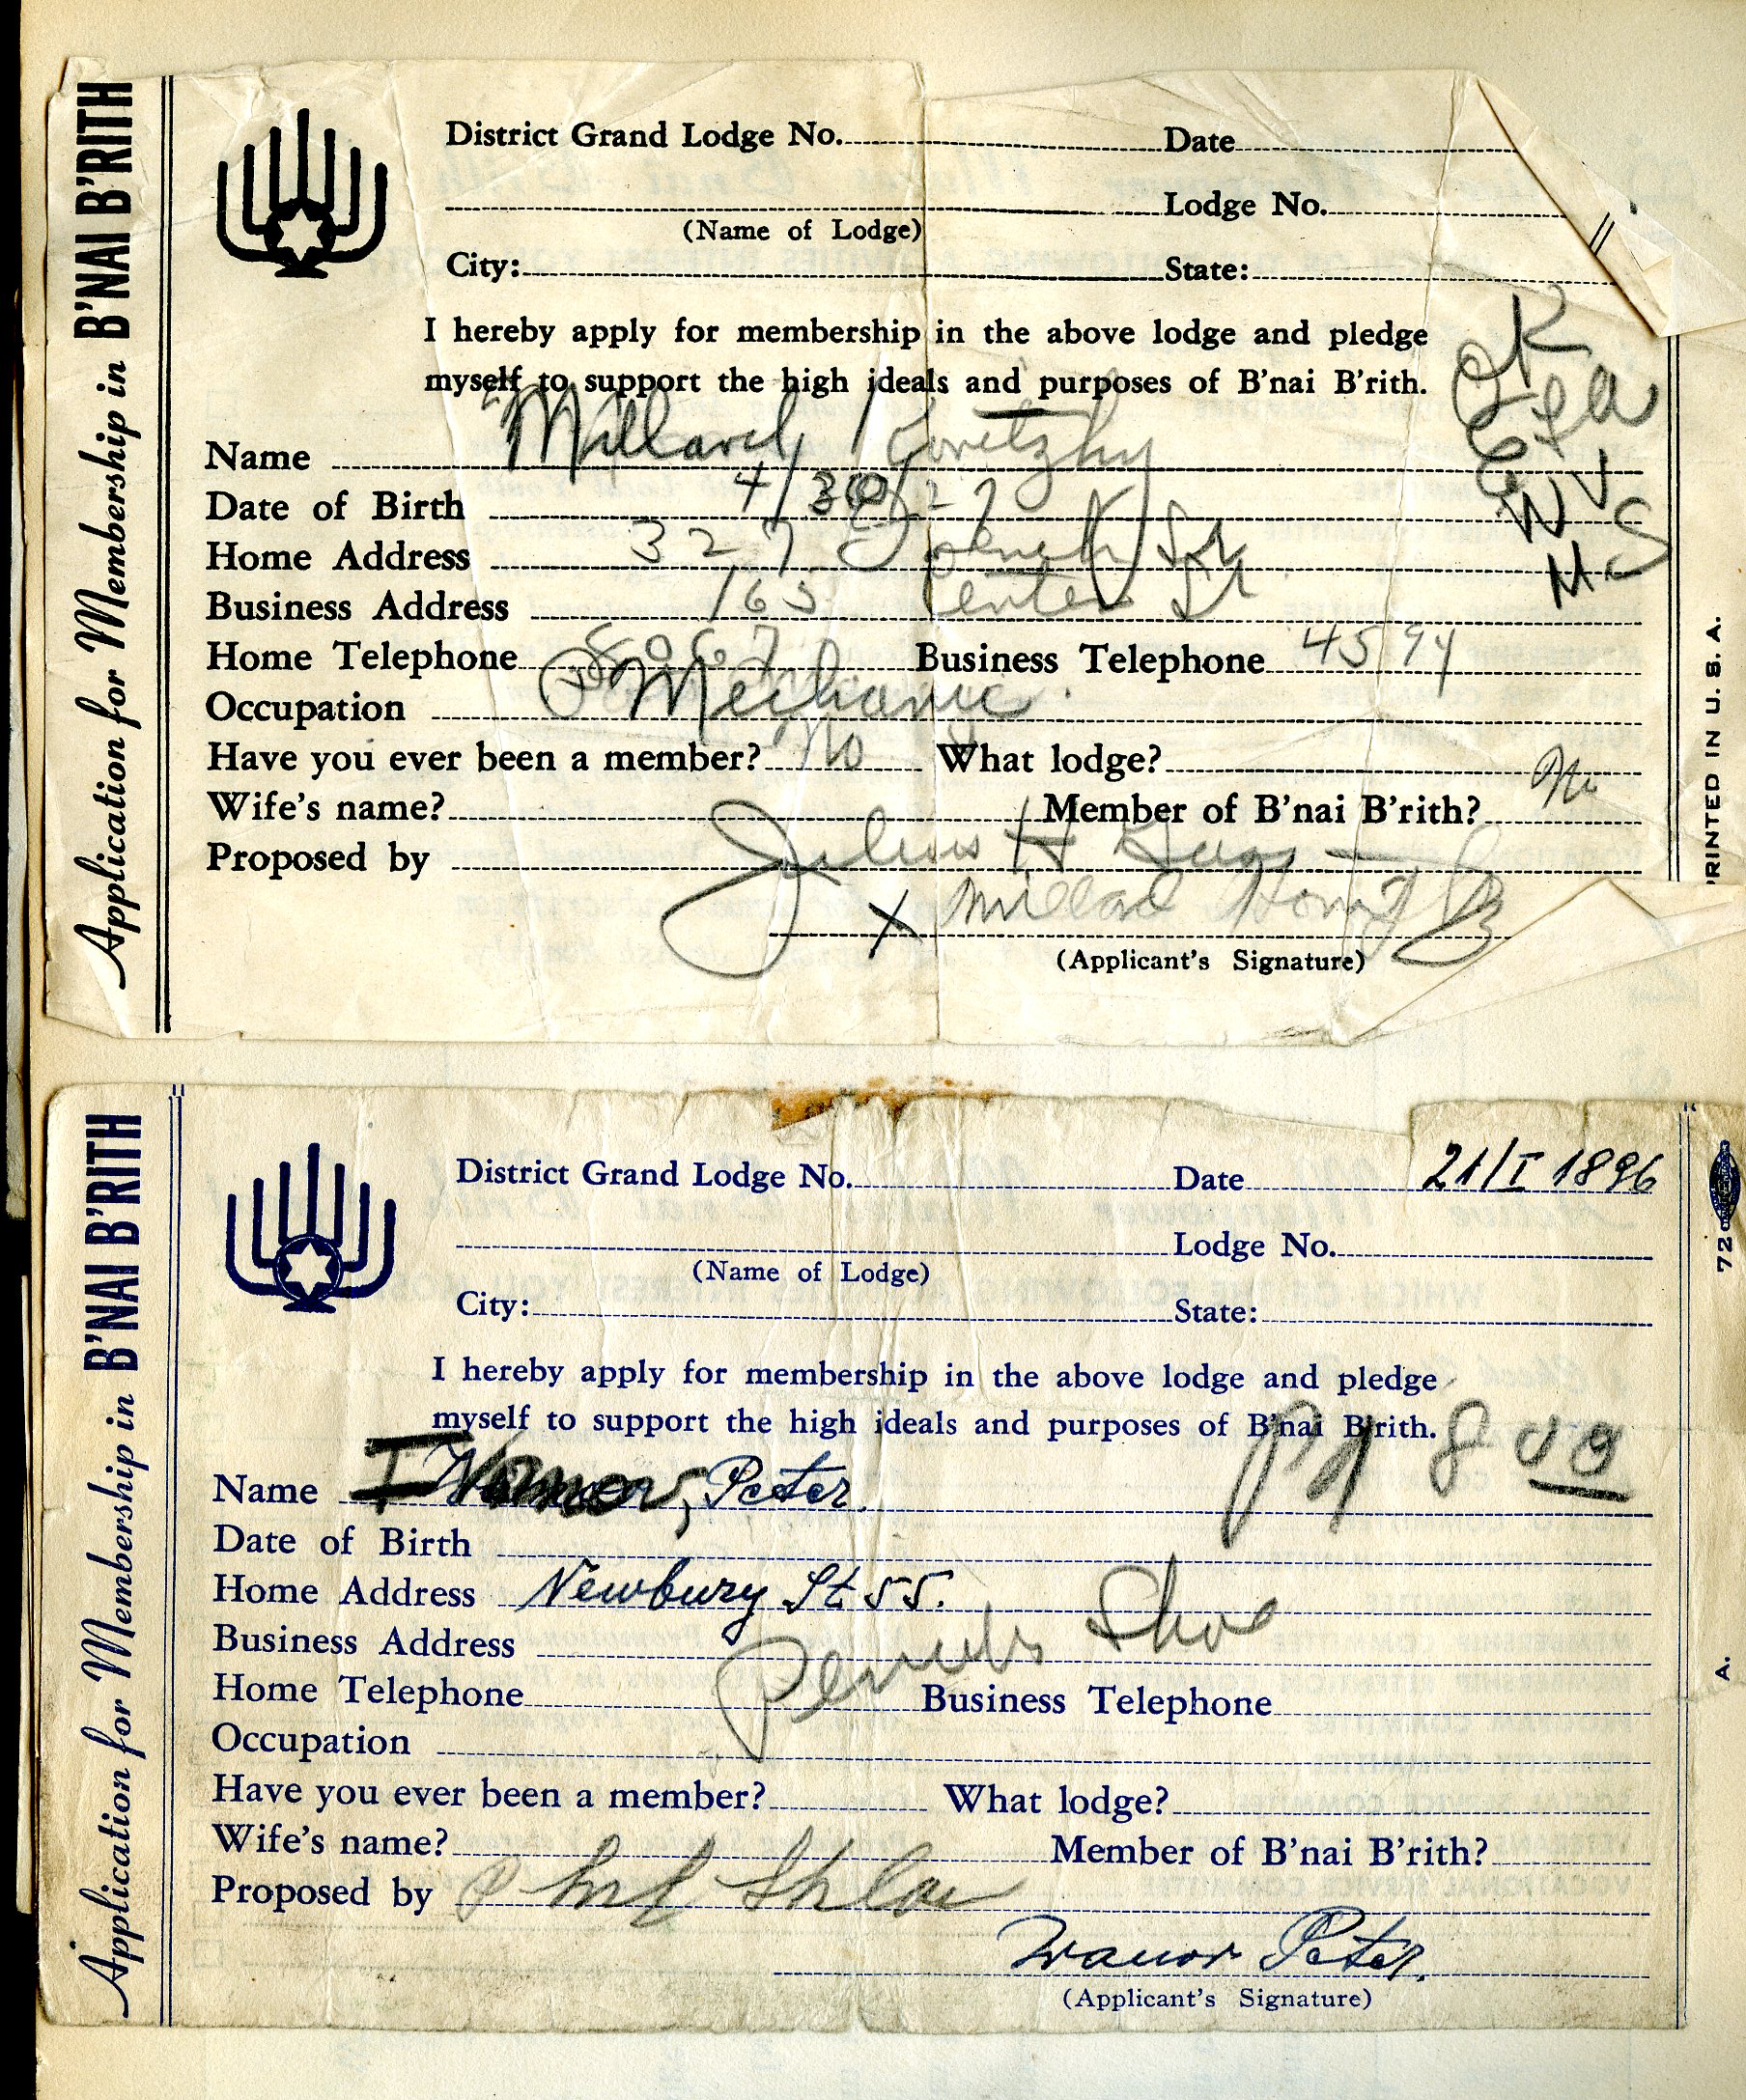 Application for Membership in B'NAI B'RITH
District Grand Lodge No. Date
Lodge No.
(Name of Lodge)
City: State:
I hereby apply for membership in the above lodge and pledge
myself to support the high ideals and purposes of B'nai B'rith.
OK
Name Millard
Date of Birth 4/30/27
Home Address 327 French St
Business Address 165 Center St
Home Telephone 8067 Business Telephone 4594
Occupation Mechanic
Have you ever been a member? No What lodge?
Wife's name? Member of B'nai B'rith? No
Proposed by Julius H
X Millard
(Applicant's Signature)
PRINTED IN U. S. A.
Application for Membership in B'NAI B'RITH
District Grand Lodge No. Date 21/I 1896
Lodge No.
(Name of Lodge)
City: State:
I hereby apply for membership in the above lodge and pledge
myself to support the high ideals and purposes of B'nai B'rith.
Pd 8 00
Name Peter.
Date of Birth
Home Address Newbury St 55.
Business Address Shoe
Home Telephone Business Telephone
Occupation
Have you ever been a member? What lodge?
Wife's name? Member of B'nai B'rith?
Proposed by Phil
Ivanor Peter.
(Applicant's Signature)
72
A.